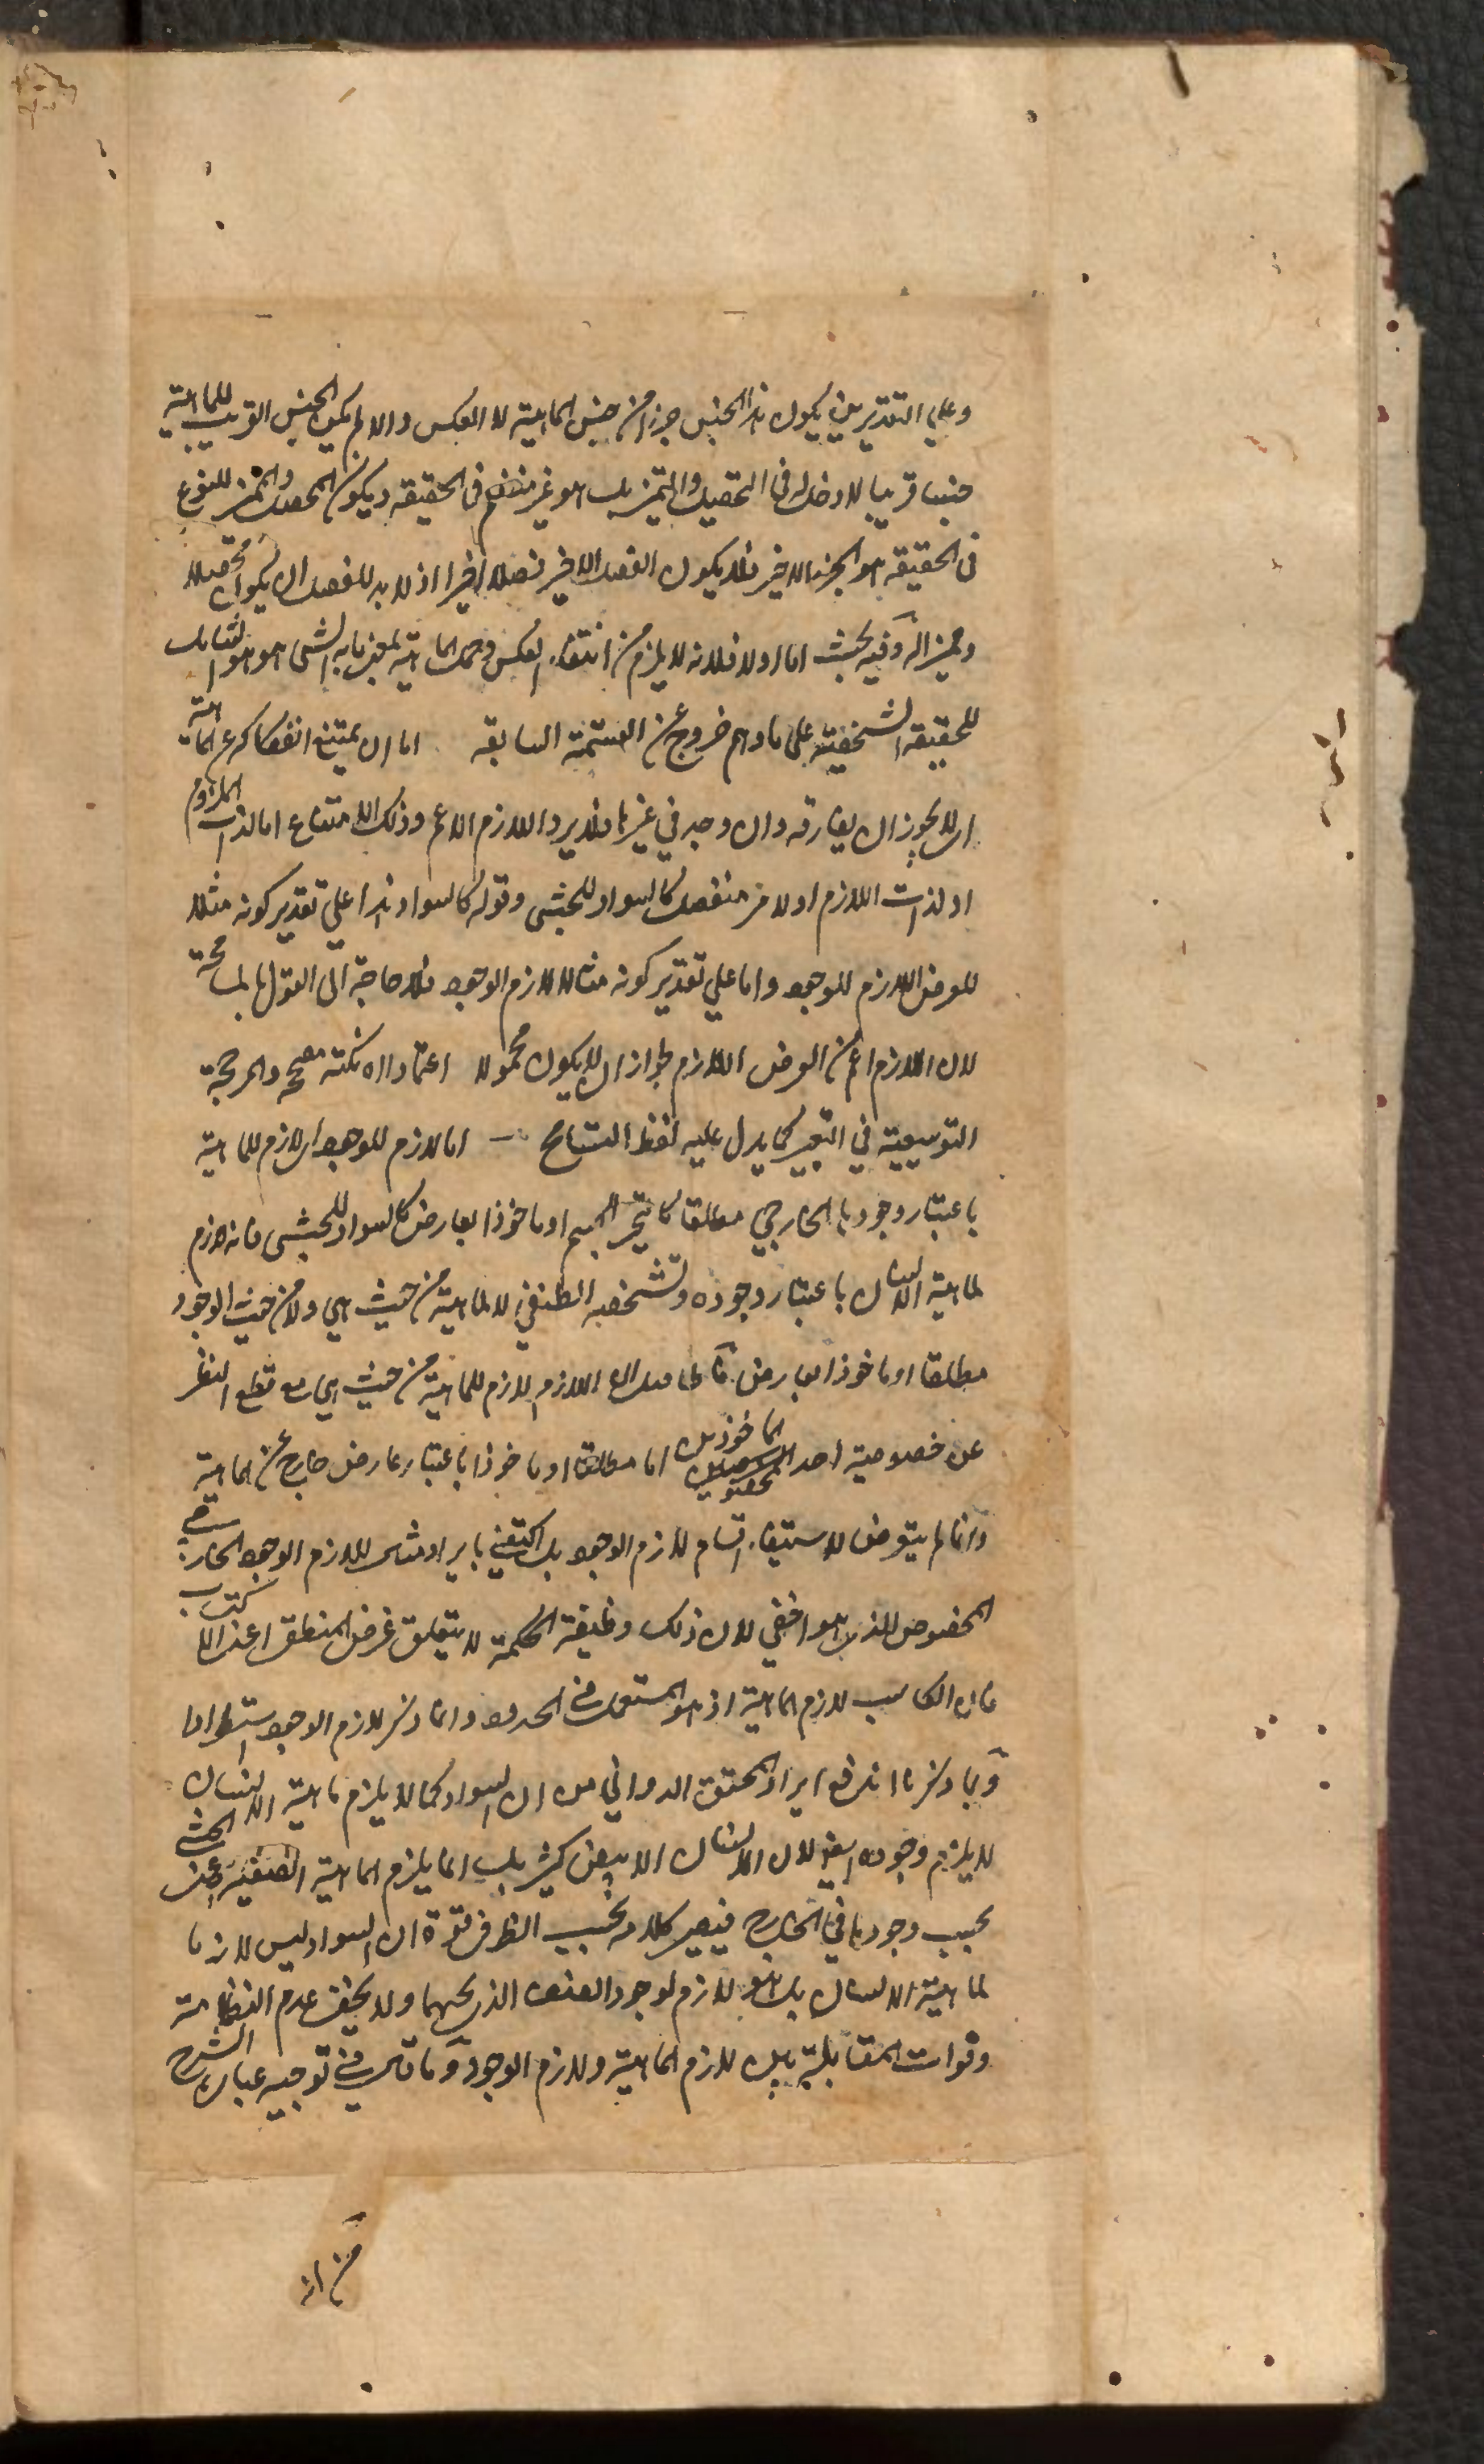 وعلى التقديرين يكون هذا الجنس جزأ من جنس الماهية لا العكس والا لم يكن الجنس القريب للماهية
جنسا قريبا لا دخل له في التحصيل والتميز بل هو غير منضم في الحقيقة ويكون المحصل والمميز للنوع
في الحقيقة هو الجزء الاخير فلا يكون الفصل الاخير فصلا اخيرا اذ لا بد للفصل ان يكون محصلا
ومميزا له وفيه بحث اما اولا فلانه لا يلزم من انتفاء العكس وحمل الماهية بمعنى ما به الشيء هو هو الشامل
للحقيقة الشخصية على ما وهم خروج عن القسمة السابقة اما ان يمتنع انفكاكه عن الماهية
اي لا يجوز ان يفارقه وان وجد في غيرها فلا يرد اللازم الاعم وذلك الامتناع اما لذات الملزوم
او لذات اللازم او لامر منفصل كالسواد للحبشي وقوله كالسواد هذا على تقدير كونه مثلا
للعرض اللازم للوجود واما على تقدير كونه مثالا للازم الوجود فلا حاجة الى القول بالمسامحة
لان اللازم اعم من العرض اللازم لجواز ان لا يكون محمولا اعتمادا نكتة مصححة والمرجحة
التوسيعية في التعبير كما يدل عليه لفظ التسامح اما لازم للوجود اي لازم للماهية
باعتبار وجودها الخارجي مطلقا كالتحيز للجسم او ماخوذا بعارض كالسواد للحبشي فانه لازم
لماهية الانسان باعتبار وجوده وتشخصه الصنفي لا لماهية من حيث هي ولا من حيث الوجود
مطلقا او ماخوذا بعارض فالحاصل ان اللازم لازم للماهية من حيث هي مع قطع النظر
عن خصوصية احد الوجودين اما مطلقا او ماخوذا باعتبار عارض خارج عن الماهية
وانما لم يتعرض لاستيفاء اقسام لازم الوجود بل اكتفى بايراد مثال للازم الوجود الخارجي
المخصوص الذي هو اخفى لان ذلك وظيفة الحكمة لا يتعلق غرض المنطق اعني الاكتساب
فان الكاسب لازم الماهية اذ هو المستعمل في الحدود وانما ذكر لازم الوجود استطرادا
وبما ذكرنا اندفع ايراد المحقق الدواني من ان السواد كما لا يلزم ماهية الانسان
لا يلزم وجوده ايضا لان الانسان الابيض كثير بل انما يلزم الماهية الصنفية اعني الحبشي
بحسب وجودها في الخارج فيصير كلامه بحسب الظرف قوة ان السواد ليس لازما
لماهية الانسان بل هو لازم لوجود الصنف الذي تحتها ولا يخفى عدم انتظامه
وفوات المقابلة بين لازم الماهية ولازم الوجود وما قال في توجيه عبارة الشرح
من ان